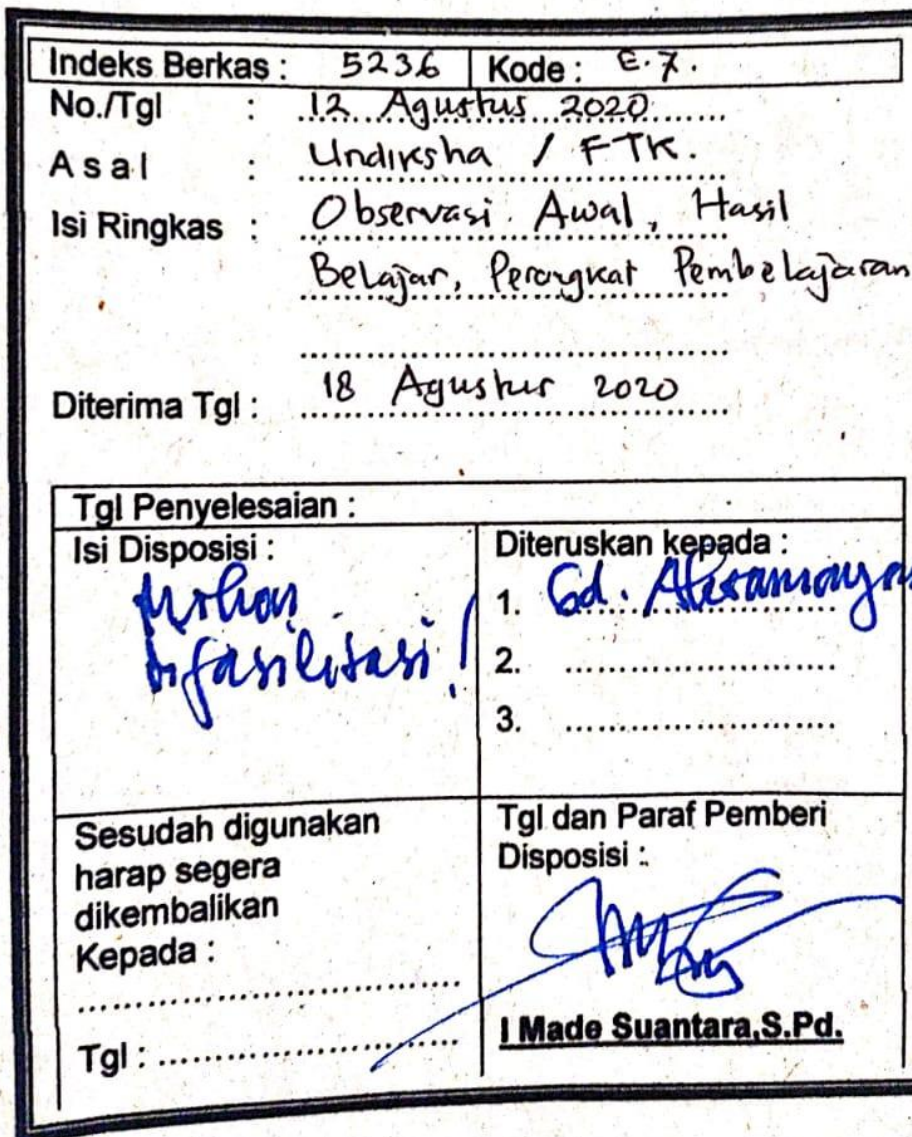 Indeks Berkas : 5236 Kode : E.7.
No./Tgl : 12 Agustus 2020
Asal : Undiksha / FTK.
Isi Ringkas : Observasi Awal, Hasil
Belajar, Perangkat Pembelajaran
Diterima Tgl : 18 Agustus 2020
Tgl Penyelesaian :
Isi Disposisi :
Mohon
difasilitasi !
Diteruskan kepada :
1. Gd.
2.
3.
Sesudah digunakan
harap segera
dikembalikan
Kepada :
Tgl :
Tgl dan Paraf Pemberi
Disposisi :
I Made Suantara,S.Pd.